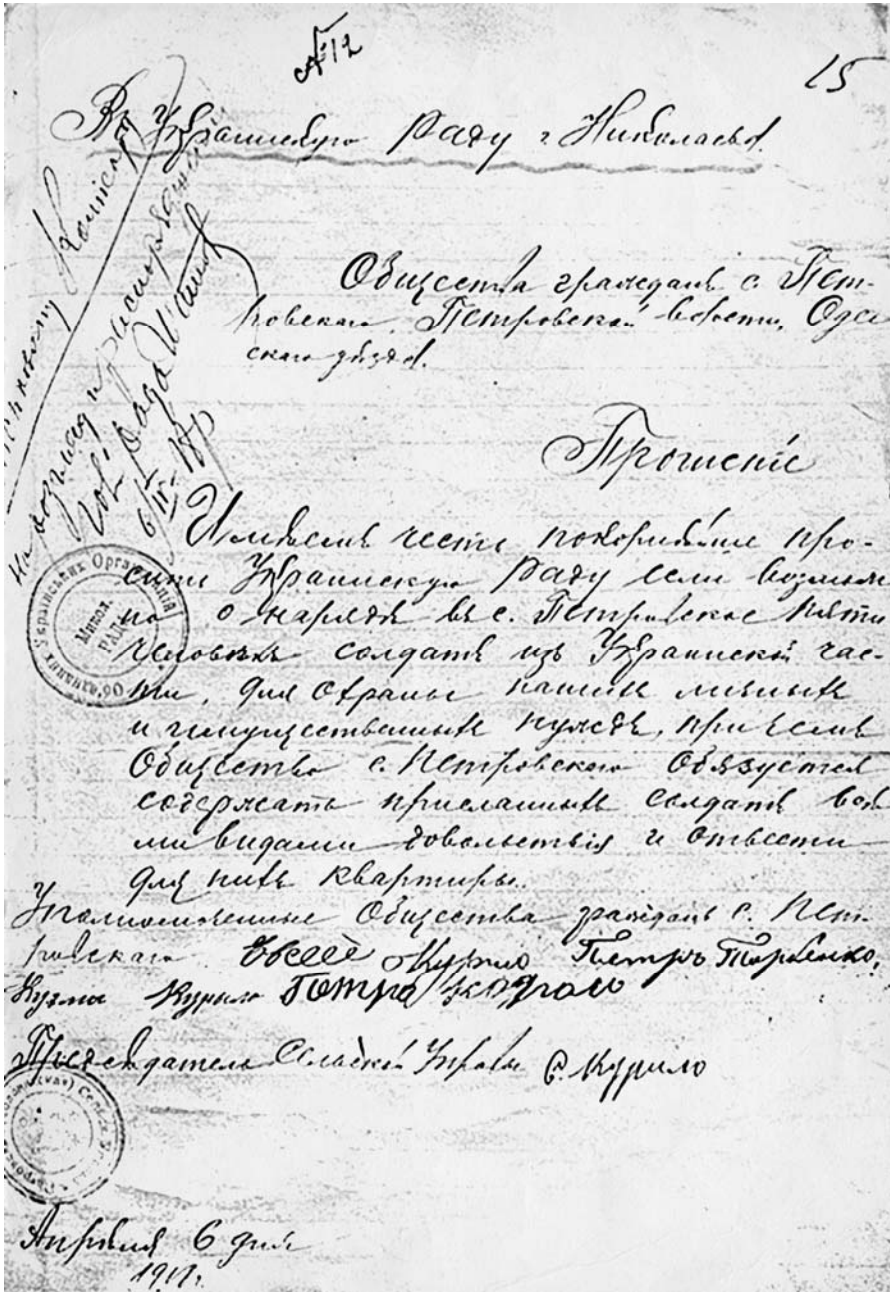 № 12
15
Въ Украинскую Раду г. Николаева.
на розгляд и распоряд
Гол. Рада
6/IV 18 р
Общества гражданъ с. Пет-
ровскаго, Петровской волости, Одес
скаго уѣзда.
Прошеніе
Имѣемъ честь покорнѣйше про-
сить Украинскую Раду если возмож
но о нарядѣ въ с. Петровское пяти
человѣкъ солдатъ изъ Украинской час-
ти, для охраны нашихъ личныхъ
и имущественныхъ нуждъ, при чемъ
Общество с. Петровскаго Обязуется
содержать присланныхъ солдатъ всѣ
ми видами довольствія и отвести
для нихъ квартиры.
Уполномоченные Общества граждань с. Пет-
ровскаго Евсей Курило Петръ Торбенко,
Кузма Курило Петро
Предсѣдатель Сельской Управы Е. Курило
Апрѣля 6 дня
Об'єднаних Українських Організацій
Микол.
РАДА